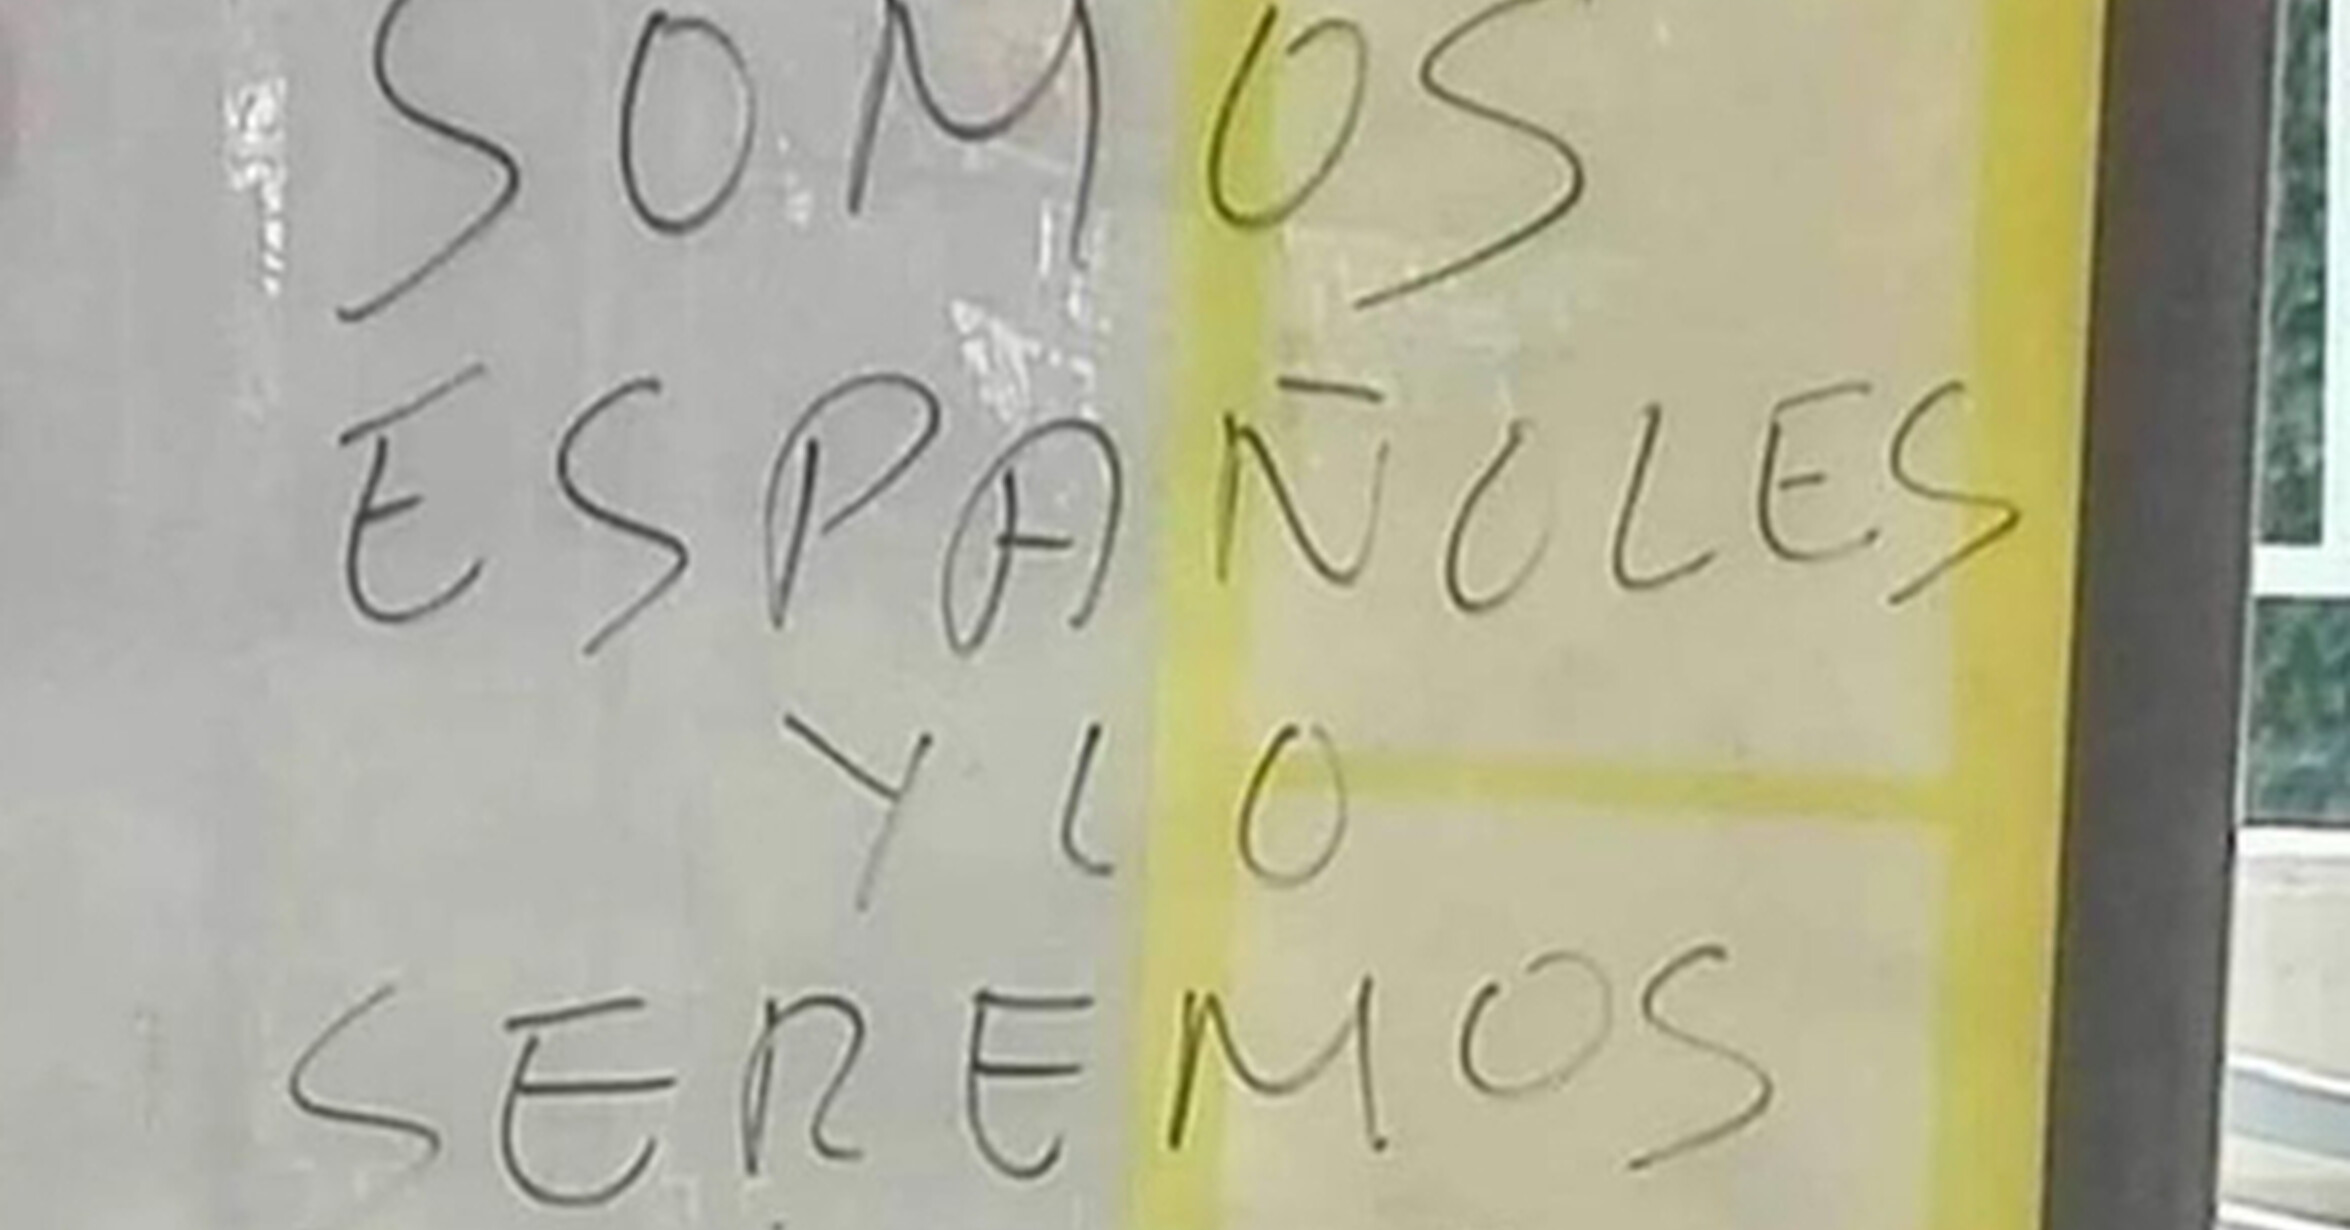 SOMOS
ESPAÑOLES
Y LO
SEREMOS